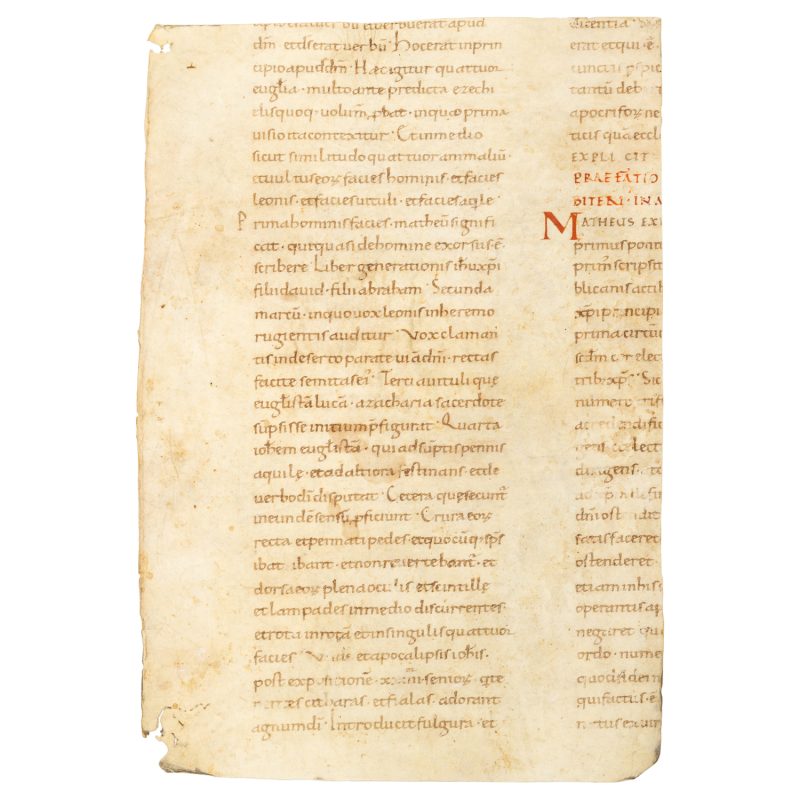 dm̄ et d̄s erat verbū · Hoc erat in prin
cipio apud dm̄ Haec igitur quattuor
euglīa · multo ante predicta ezechi
elis quoq · volum̄ ꝓbat · in quo prima
visio ita contexitur · Et in medio
sicut similitudo quattuor animaliū ·
et uultus eoꝝ facies hominis · et facies
leonis · et facies uituli · et facies aq̄le
Prima hominis facies · matheū signifi
cat · qui quasi de homine exorsus ē
scribere Liber generationis ihū xp̄i
filii david · filii abraham Secunda
marcū · in quo vox leonis in heremo
rugientis auditur · Vox claman
tis in deserto parate uiā dn̄i · rectas
facite semitas ei᾽ · Tercia uituli quę
euglīstā lucā · a zacharia sacerdote
sūpsisse initium p̄figurat · Quarta
ioh̄em euglīstā · qui adsūptis pennis
aquilę · et ad altiora festinans · et de
verbo dī disputat · Cetera quę secunt᾽
in eundē sensū ꝓficiunt · Crura eoꝝ
recta et pennati pedes · et quocūq · sp̄s
ibat ibant · et non revertebant᾽ · et
dorsa eoꝝ plena oculis et scintillę
et lampades in medio discurrentes ·
et rota in rotā et in singulis quattuor
facies Vnde et apocalipsis ioh̄is ·
post expositionē · xxiiii · senioꝝ · q te
nentes citharas · et fialas · adorant
agnum dī · Introducit fulgura · et
erat et qui · ē
cunctis
tantū deb
apocrifoꝝ ne
ticis quā eccl
EXPLICIT
PRAEFATIO
DITERI · IN
MATHEUS EX
primus poni
prim̄ scripsit
blicanis actib
xp̄i principi
prima circūc
sedm̄ electi
trib᾽ xp̄s Sic
numero
electi
dirigens
dm̄ ost
satisfaceret
ostenderet ·
etiam in his
operantis
negaret
ordo · nume
quo fidem
qui factus · ē